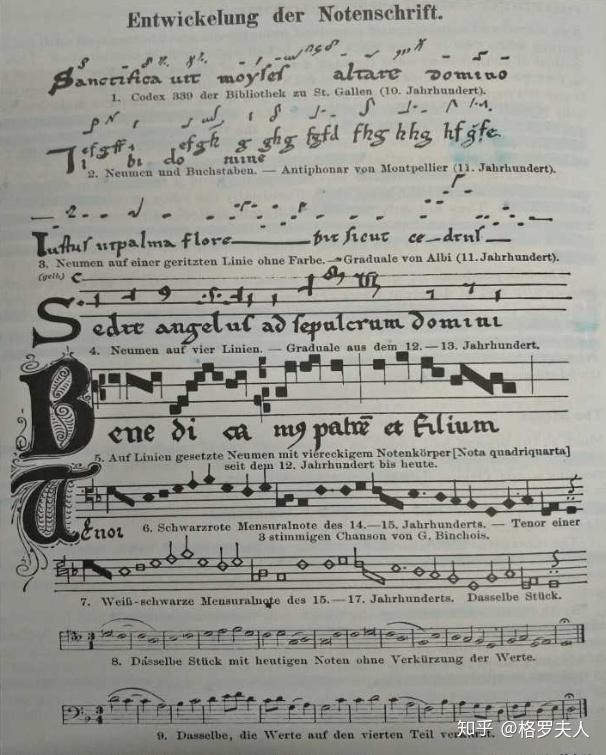 Entwickelung der Notenschrift.
Sanctifica uit moyses altare domino
1. Codex 339 der Bibliothek zu St. Gallen (10. Jahrhundert).
bi do mine
2. Neumen und Buchstaben. — Antiphonar von Montpellier (11. Jahrhundert).
Iustus utpalma flore bit sicut ce-drus
3. Neumen auf einer geritzten Linie ohne Farbe. — Graduale von Albi (11. Jahrhundert).
(gelb) C
Sedit angelus ad sepulcrum domini
4. Neumen auf vier Linien. — Graduale aus dem 12. — 13. Jahrhundert.
Bene di ca patrē et filium
5. Auf Linien gesetzte Neumen mit viereckigem Notenkörper [Nota quadriquarta]
seit dem 12. Jahrhundert bis heute.
Tenor
6. Schwarzrote Mensuralnote des 14.—15. Jahrhunderts. — Tenor einer
3 stimmigen Chanson von G. Binchois.
7. Weiß-schwarze Mensuralnote des 15.—17. Jahrhunderts. Dasselbe Stück.
8. Dasselbe Stück mit heutigen Noten ohne Verkürzung der Werte.
9. Dasselbe, die Werte auf den vierten Teil
知乎 @格罗夫人